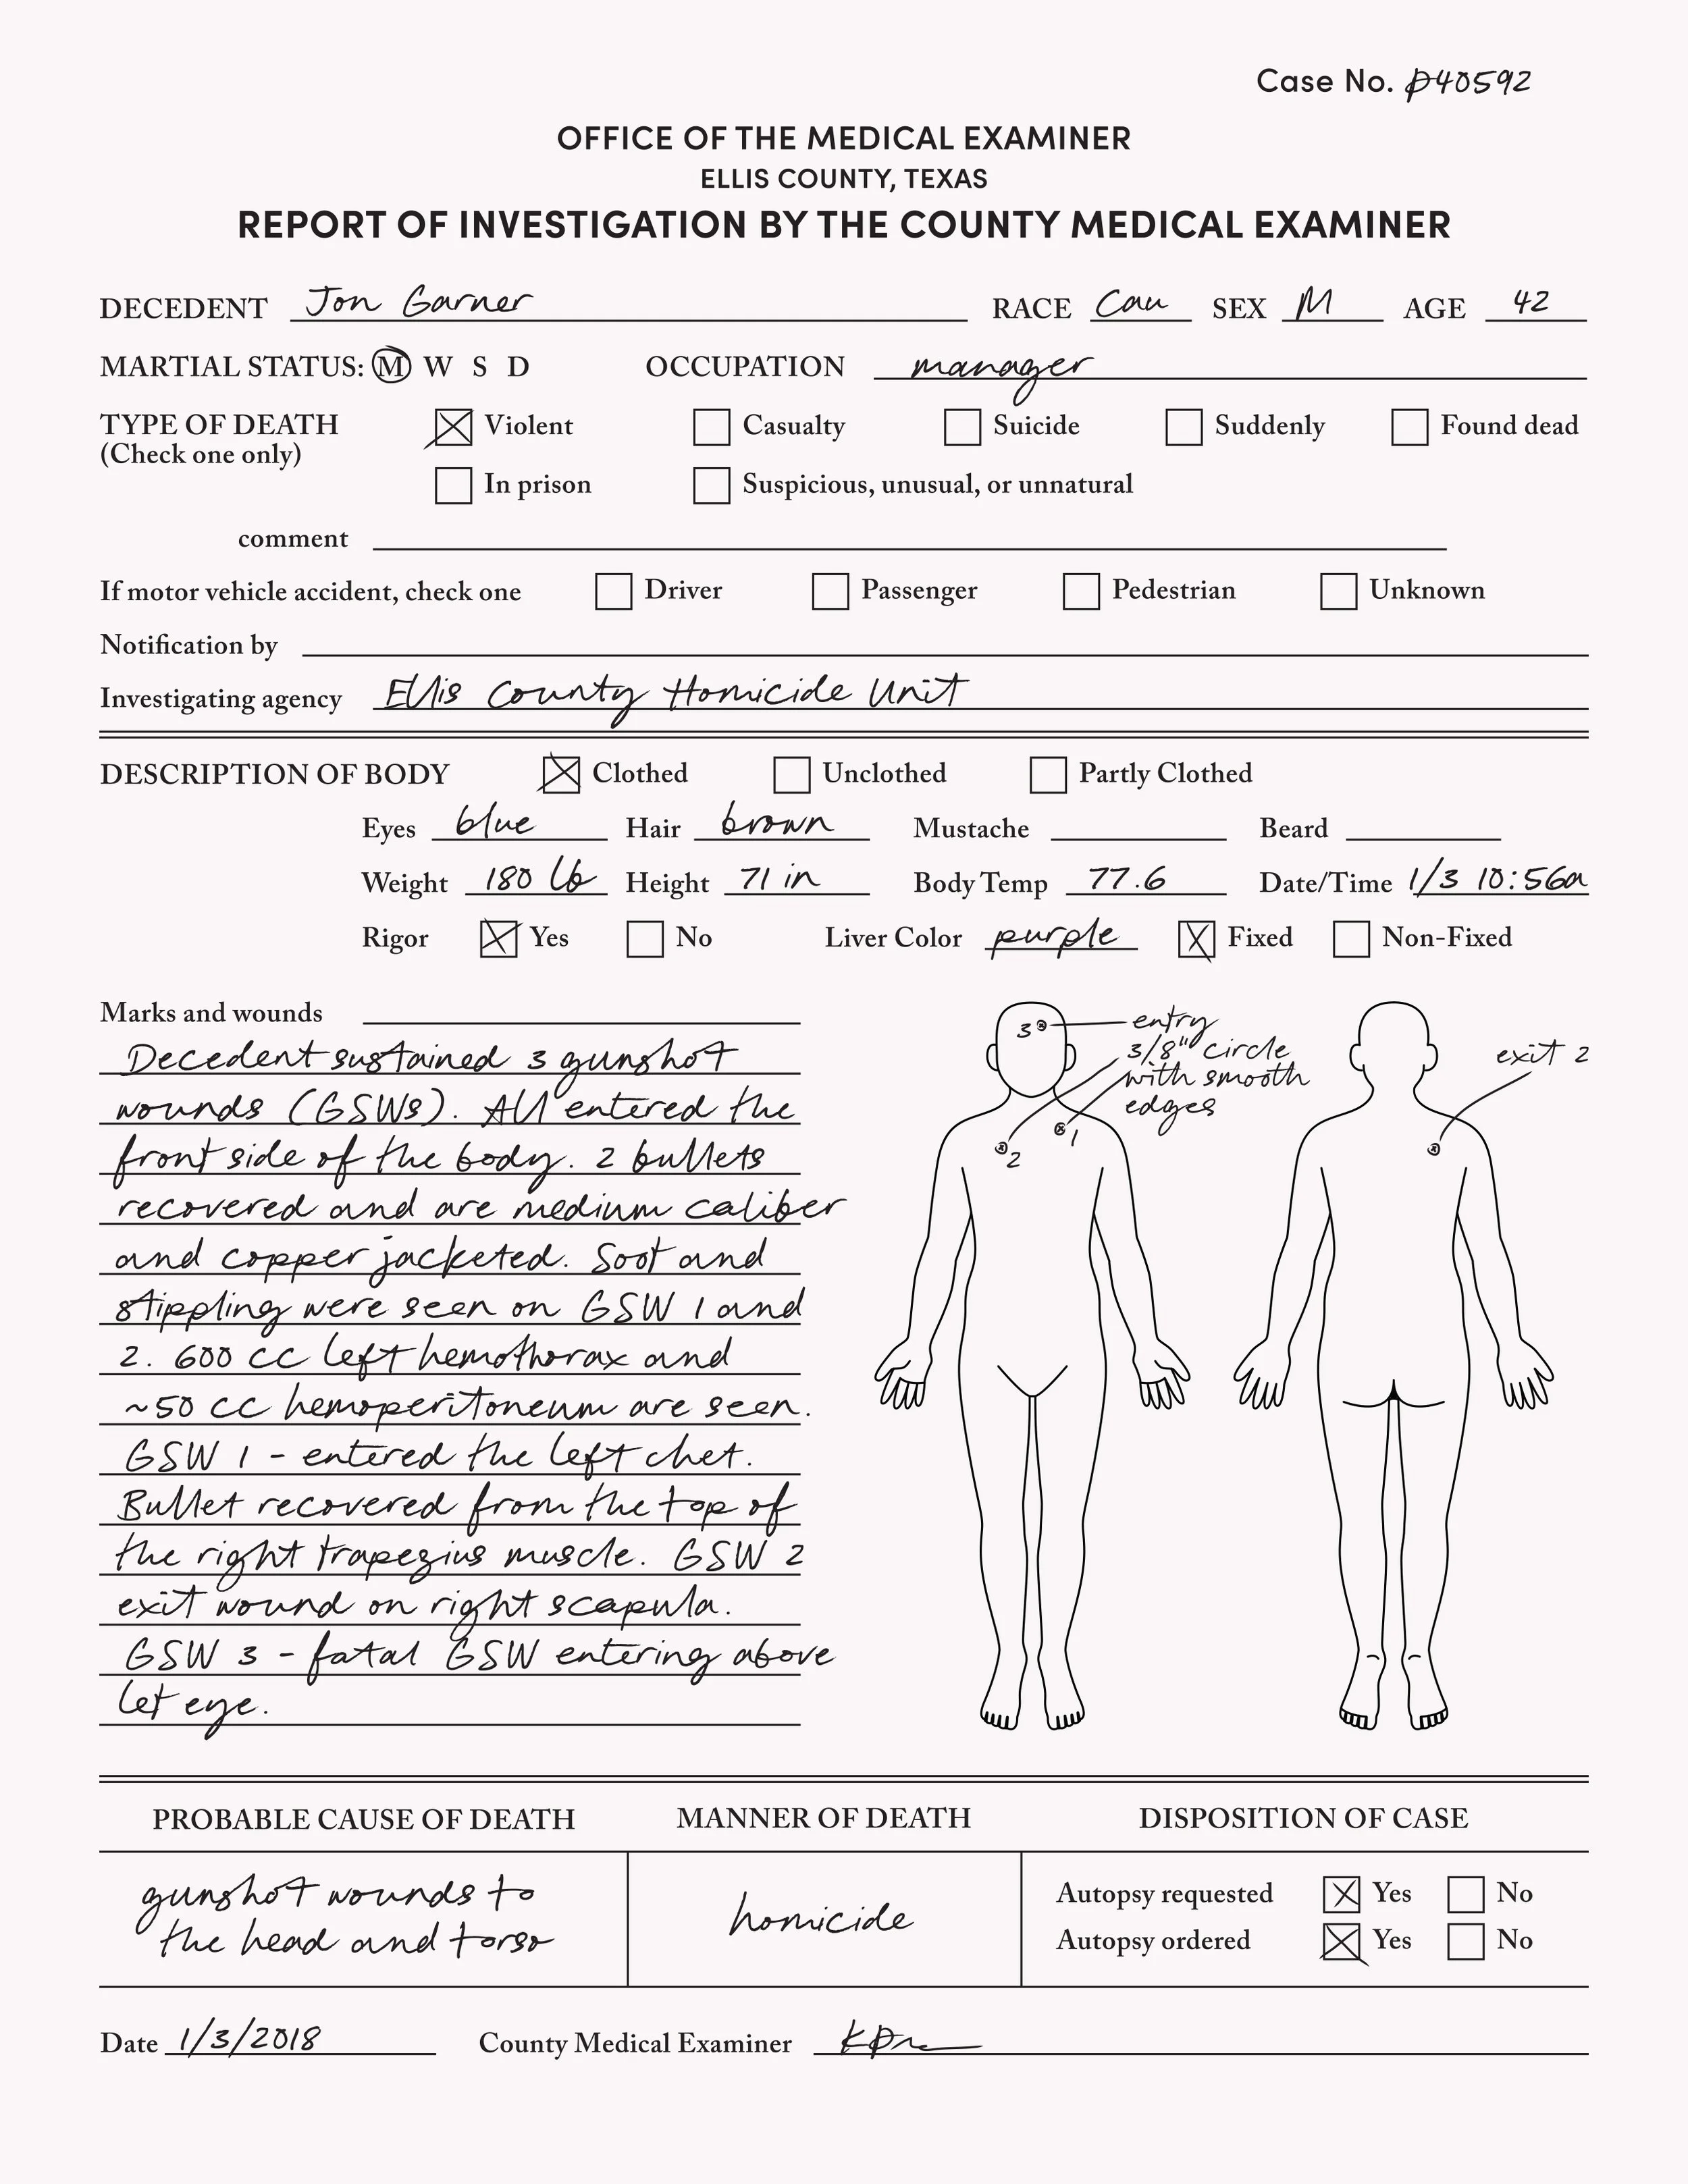 Case No. D40592
OFFICE OF THE MEDICAL EXAMINER
ELLIS COUNTY, TEXAS
REPORT OF INVESTIGATION BY THE COUNTY MEDICAL EXAMINER
DECEDENT Jon Garner RACE Cau SEX M AGE 42
MARTIAL STATUS: M W S D OCCUPATION manager
TYPE OF DEATH Violent Casualty Suicide Suddenly Found dead
(Check one only)
In prison Suspicious, unusual, or unnatural
comment
If motor vehicle accident, check one Driver Passenger Pedestrian Unknown
Notification by
Investigating agency Ellis County Homicide Unit
DESCRIPTION OF BODY Clothed Unclothed Partly Clothed
Eyes blue Hair brown Mustache Beard
Weight 180 lb Height 71 in Body Temp 77.6 Date/Time 1/3 10:56a
Rigor Yes No Liver Color purple Fixed Non-Fixed
Marks and wounds
Decedent sustained 3 gunshot
wounds (GSWs). All entered the
front side of the body. 2 bullets
recovered and are medium caliber
and copper jacketed. Soot and
stippling were seen on GSW 1 and
2. 600 cc left hemothorax and
~50 cc hemoperitoneum are seen.
GSW 1 - entered the left chet.
Bullet recovered from the top of
the right trapezius muscle. GSW 2
exit wound on right scapula.
GSW 3 - fatal GSW entering above
let eye.
3
entry
3/8" circle
with smooth
edges
1
2
exit 2
PROBABLE CAUSE OF DEATH MANNER OF DEATH DISPOSITION OF CASE
gunshot wounds to
the head and torso
homicide
Autopsy requested Yes No
Autopsy ordered Yes No
Date 1/3/2018 County Medical Examiner